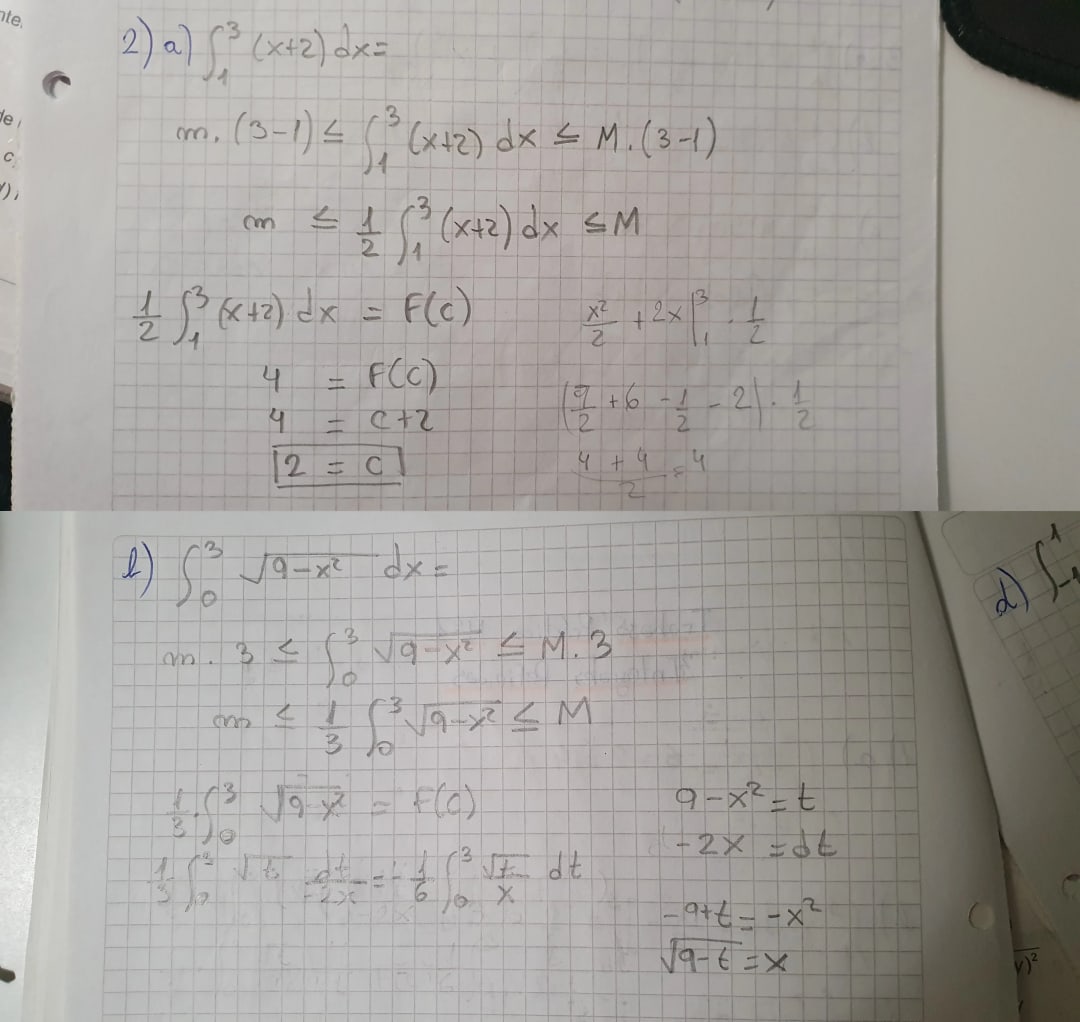 nte.
2) a) ∫₁³ (x+2) dx =
m. (3-1) ≤ ∫₁³ (x+2) dx ≤ M. (3-1)
m ≤ 1/2 ∫₁³ (x+2) dx ≤ M
1/2 ∫₁³ (x+2) dx = F(c)
x²/2 + 2x |₁³ . 1/2
4 = F(c)
(9/2 + 6 - 1/2 - 2) . 1/2
4 = c+2
2 = c
(4 + 4)/2 = 4
b) ∫₀³ √(9-x²) dx =
d) ∫₋₁¹
m. 3 ≤ ∫₀³ √(9-x²) ≤ M. 3
m ≤ 1/3 ∫₀³ √(9-x²) ≤ M
1/3 . ∫₀³ √(9-x²) = F(c)
9 - x² = t
-2x = dt
1/3 ∫₀³ √t dt/-2x = -1/6 ∫₀³ √t/x dt
-9+t = -x²
√(9-t) = x